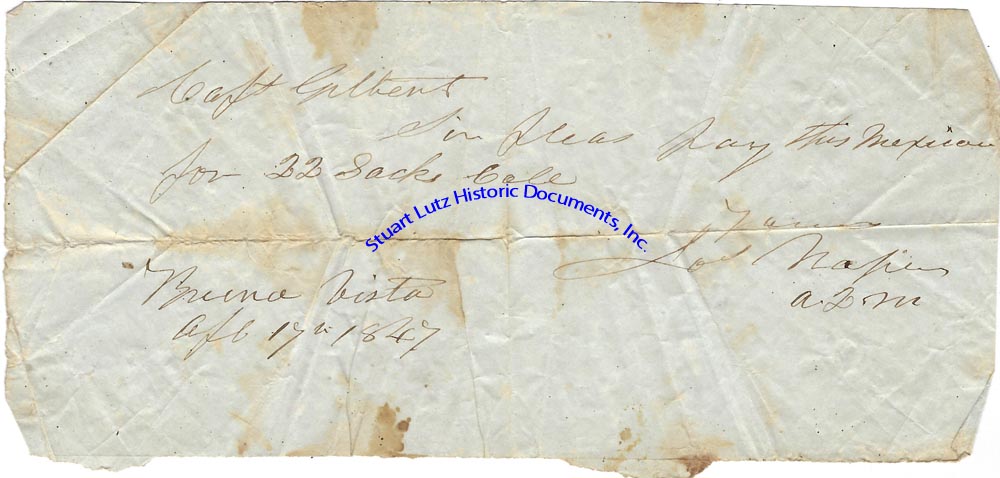 Capt Gilbert
Sir pleas pay this Mexican
for 22 Sacks Cole
Stuart Lutz Historic Documents, Inc.
Yours
Jos Napier
A. Q. M
Buena Vista
Apl 17th 1847